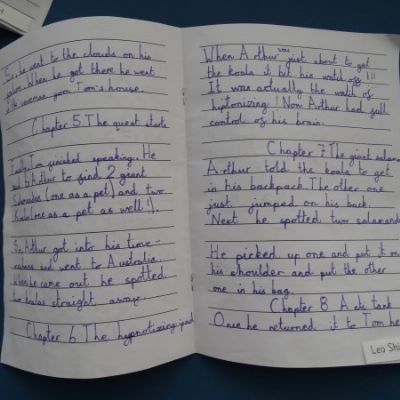 So he went to the clouds on his
When he got there he went
common goon Tom's house.
Chapter 5 The quest starts
Finally Tom finished speaking. He
Arthur to find 2 giant
(one as a pet) and two
as a pet as well!).
So Arthur got into his time-
and went to Australia.
When he came out he spotted
koalas straight away.
Chapter 6 The hypnotizing
When Arthur was just about to get
the koala it bit his watch off!!!
It was actually the watch of
hiptonizing! Now Arthur had full
control of his brain.
Chapter 7 The giant salam
Arthur told the koala to get
in his backpack. The other one
just jumped on his back.
Next he spotted two salamande
He picked up one and put it on
his shoulder and put the other
one in his bag.
Chapter 8 A tank
Once he returned it to Tom he
Leo Shi